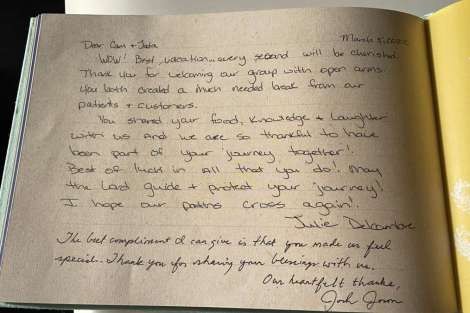 March 5, 2022
Dear Cam +
WOW! Best vacation... every second will be cherished.
Thank you for welcoming our group with open arms.
You both created a much needed break from our
patients + customers.
You shared your food, knowledge + laughter
with us and we are so thankful to have
been part of your "journey together"!
Best of luck in all that you do! May
the Lord guide + protect your "journey"!
I hope our paths cross again!
Julie
The best compliment I can give is that you made us feel
special. Thank you for sharing your blessings with us.
Our heartfelt thanks,
Josh